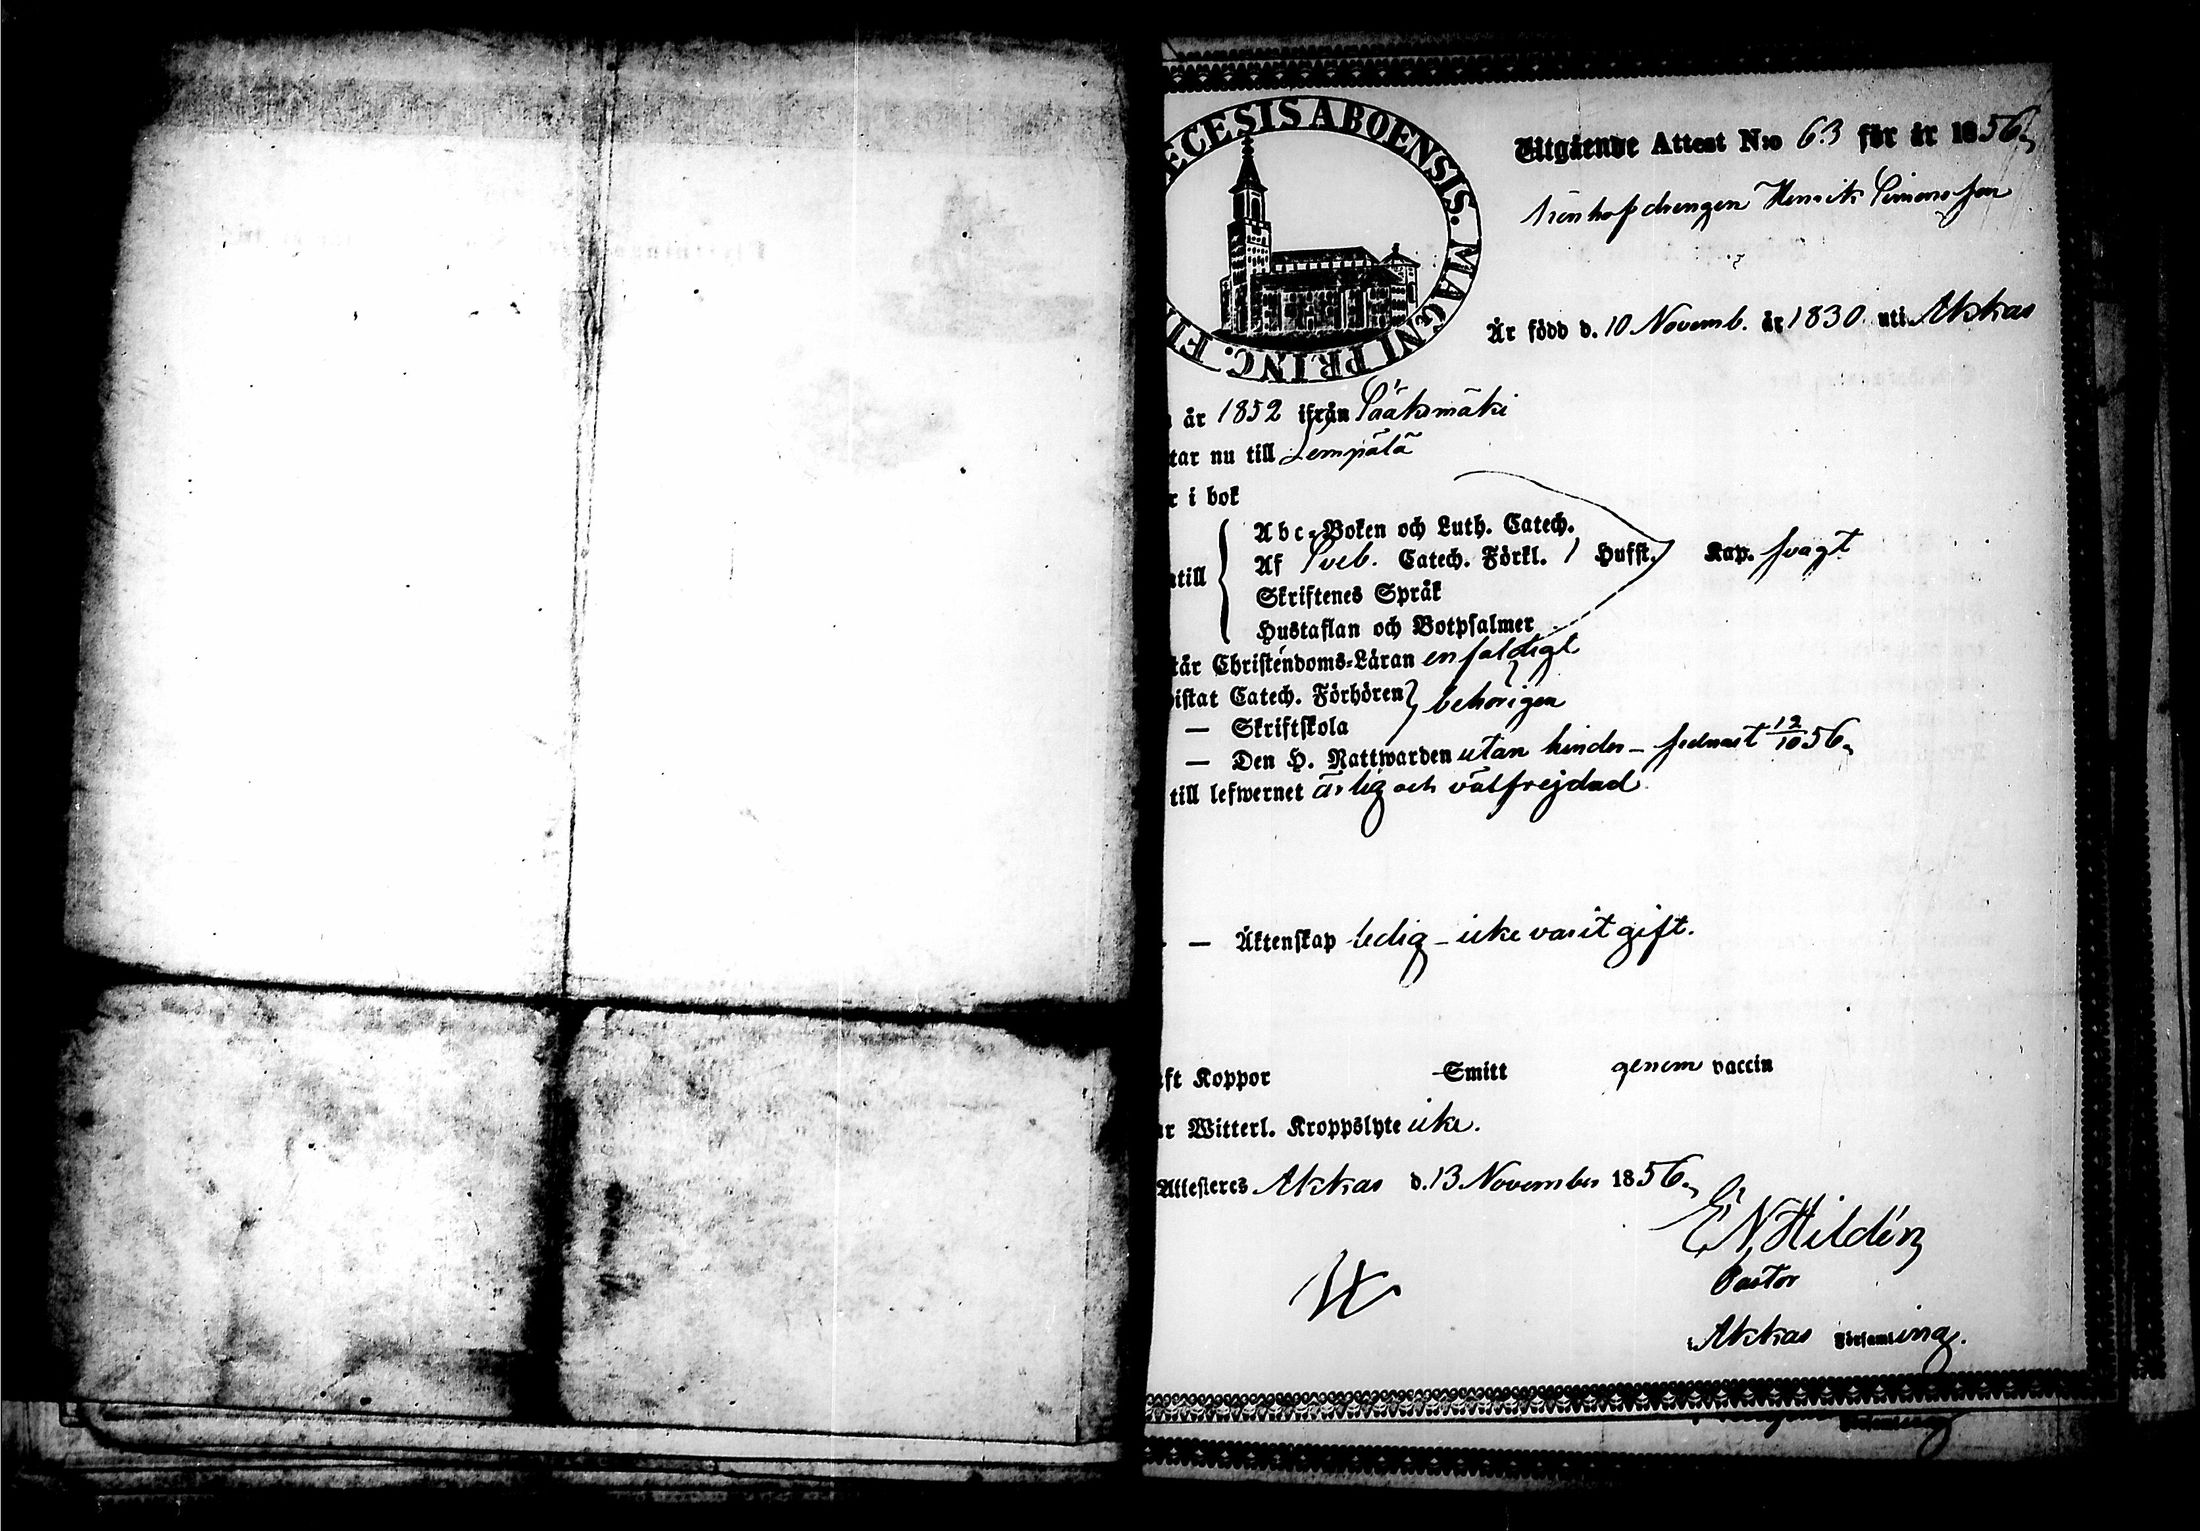 ECESIS ABOENSIS. MAGNI PRINC. FI
Utgående Attest N:o 63 för år 1856,
drengen Henrik Simonsson
Är född d. 10 Novemb. år 1830. uti Akkas
år 1852 ifrån Sääksmäki
tar nu till Lempälä
r i bok
Abc-Boken och Luth. Catech.
till Af Sveb. Catech. Förkl. / Husst. Kap. svagt
Skriftenes Språk
Hustaflan och Botpsalmer
tår Christendoms-Läran enfaldigt
istat Catech. Förhören behörigen
— Skriftskola
— Den H. Nattwarden utan hinder – sednast 12/10 56,
till lefwernet ärlig och välfrejdad
— Äktenskap ledig – icke varit gift.
ft Koppor Smitt genom vaccin
ar Witterl. Kroppslyte icke.
Attesteres Akkas d. 13 November 1856,
E N Hildén
Pastor
i Akkas Församling.